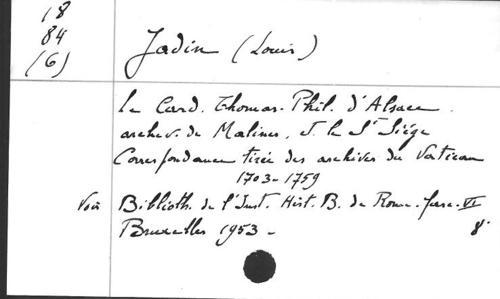 18
84
(6)
Jadin (Louis)
Le Card. Thomas-Phil. d'Alsace.
archev. de Malines, et le St Siège
Correspondance tirée des archives du Vatican
1703-1759
Voir Biblioth. de l'Inst. Hist. B. de Rome - fasc. VI
Bruxelles 1953 - 8°